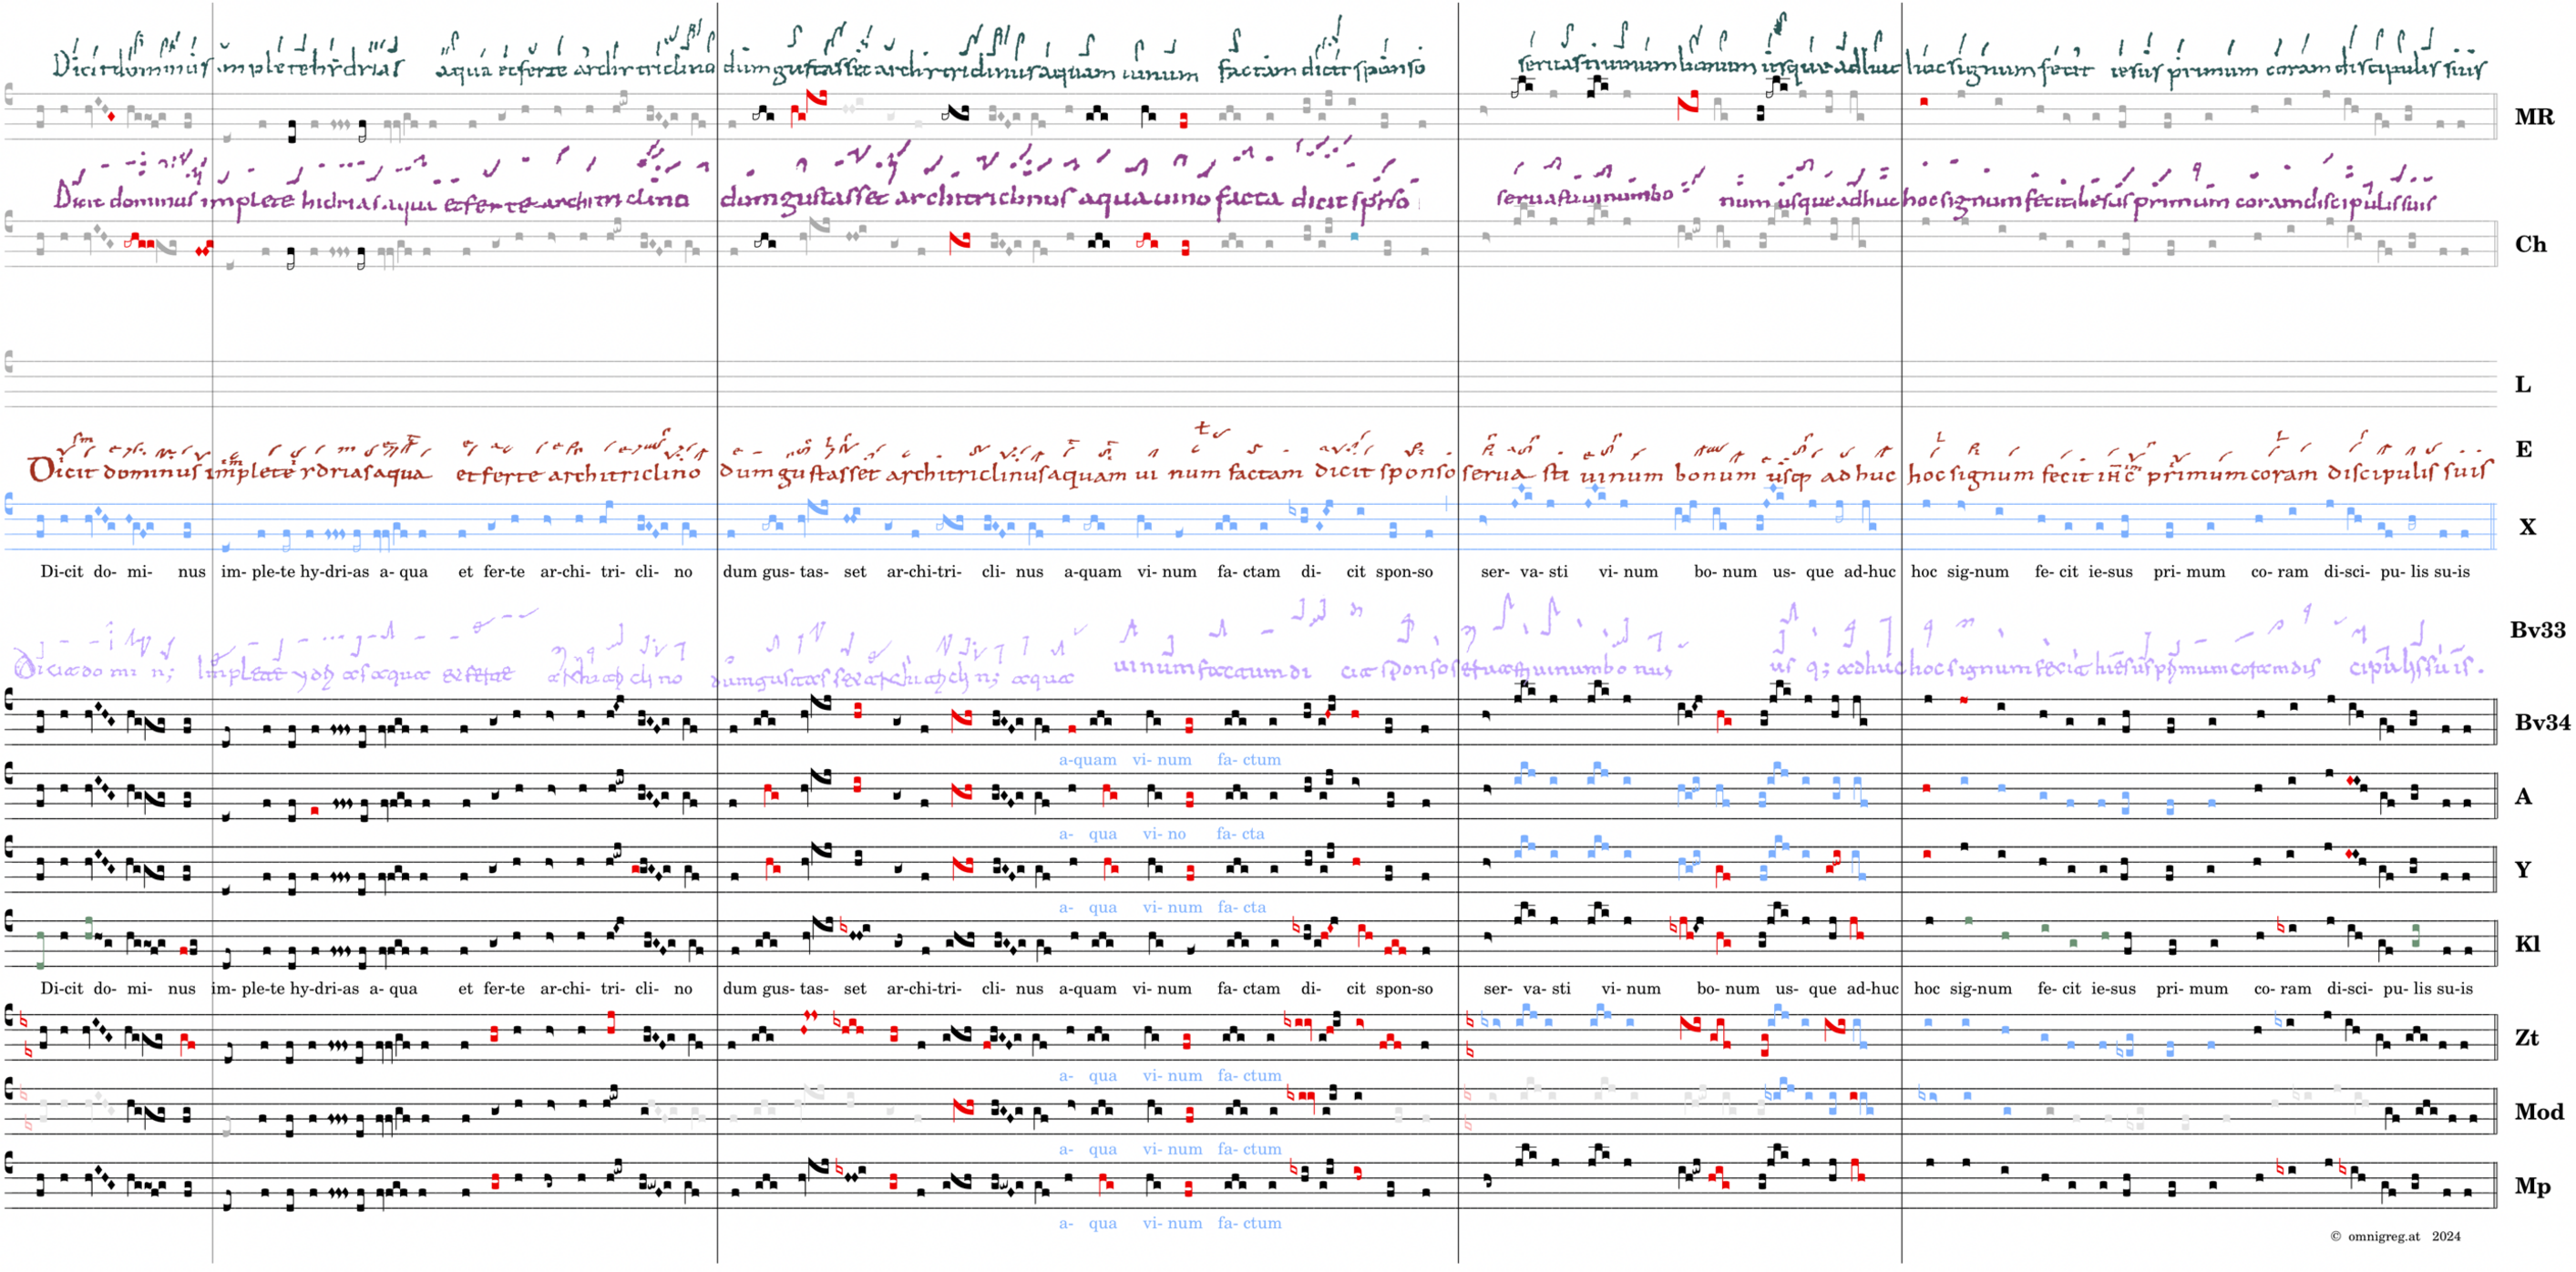 Dicit dominus implete hydrias aqua et ferte architriclino dum gustasset architriclinus aquam uinum factam dicit sponso seruasti uinum bonum usque adhuc hoc signum fecit iesus primum coram discipulis suis
MR
Dicit dominus implete hidrias aqua et ferte architriclino dum gustasset architriclinus aqua uino facta dicit sponso seruasti uinum bo num usque adhuc hoc signum fecit ihesus primum coram discipulis suis
Ch
L
Dicit dominus implete ydrias aqua et ferte architriclino dum gustasset architriclinus aquam ui num factam dicit sponso serua sti uinum bonum usq adhuc hoc signum fecit primum coram discipulis suis
E
X
Di-cit do- mi- nus im- ple-te hy-dri-as a- qua et fer-te ar-chi- tri- cli- no dum gus- tas- set ar-chi-tri- cli- nus a-quam vi- num fa- ctam di- cit spon-so ser- va- sti vi- num bo- num us- que ad-huc hoc sig-num fe- cit ie-sus pri- mum co- ram di-sci- pu- lis su-is
Bv33
uinum
Bv34
a-quam vi- num fa- ctum
A
a- qua vi- no fa- cta
Y
a- qua vi- num fa- cta
Kl
Di-cit do- mi- nus im- ple-te hy-dri-as a- qua et fer-te ar-chi- tri- cli- no dum gus- tas- set ar-chi-tri- cli- nus a-quam vi- num fa- ctam di- cit spon-so ser- va- sti vi- num bo- num us- que ad-huc hoc sig-num fe- cit ie-sus pri- mum co- ram di-sci- pu- lis su-is
Zt
a- qua vi- num fa- ctum
Mod
a- qua vi- num fa- ctum
Mp
a- qua vi- num fa- ctum
© omnigreg.at 2024